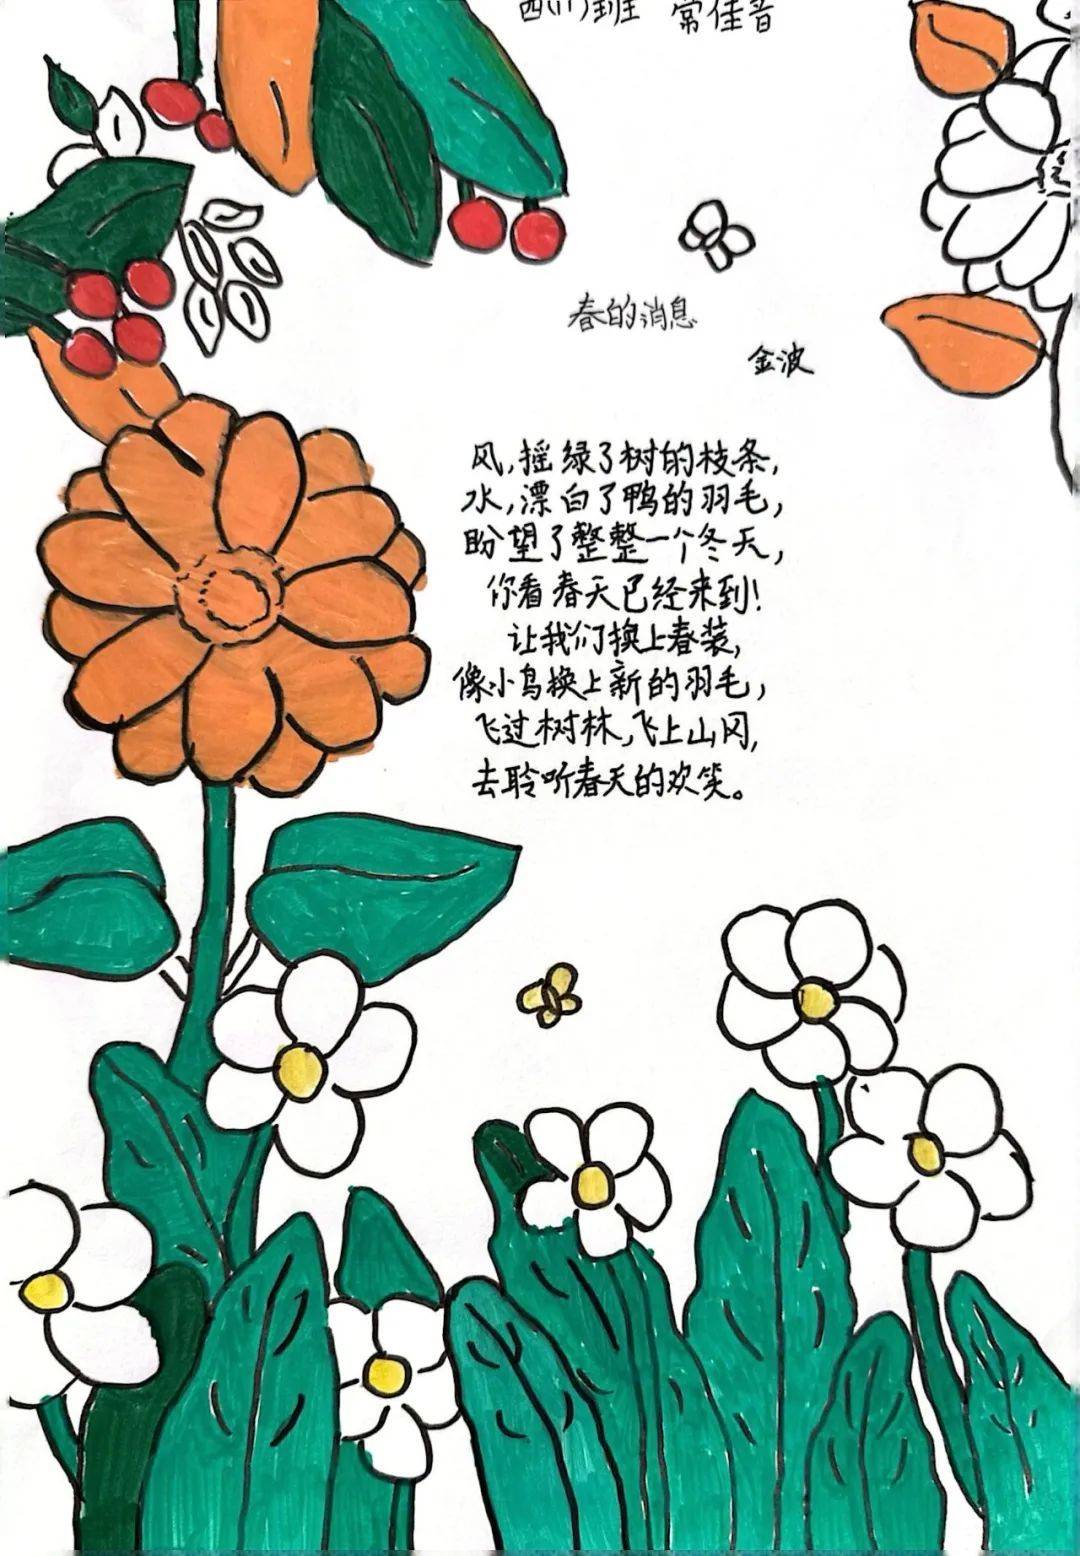 四(1)班 常佳音
春的消息
金波
风,摇绿了树的枝条,
水,漂白了鸭的羽毛,
盼望了整整一个冬天,
你看春天已经来到!
让我们换上春装,
像小鸟换上新的羽毛,
飞过树林,飞上山冈,
去聆听春天的欢笑。